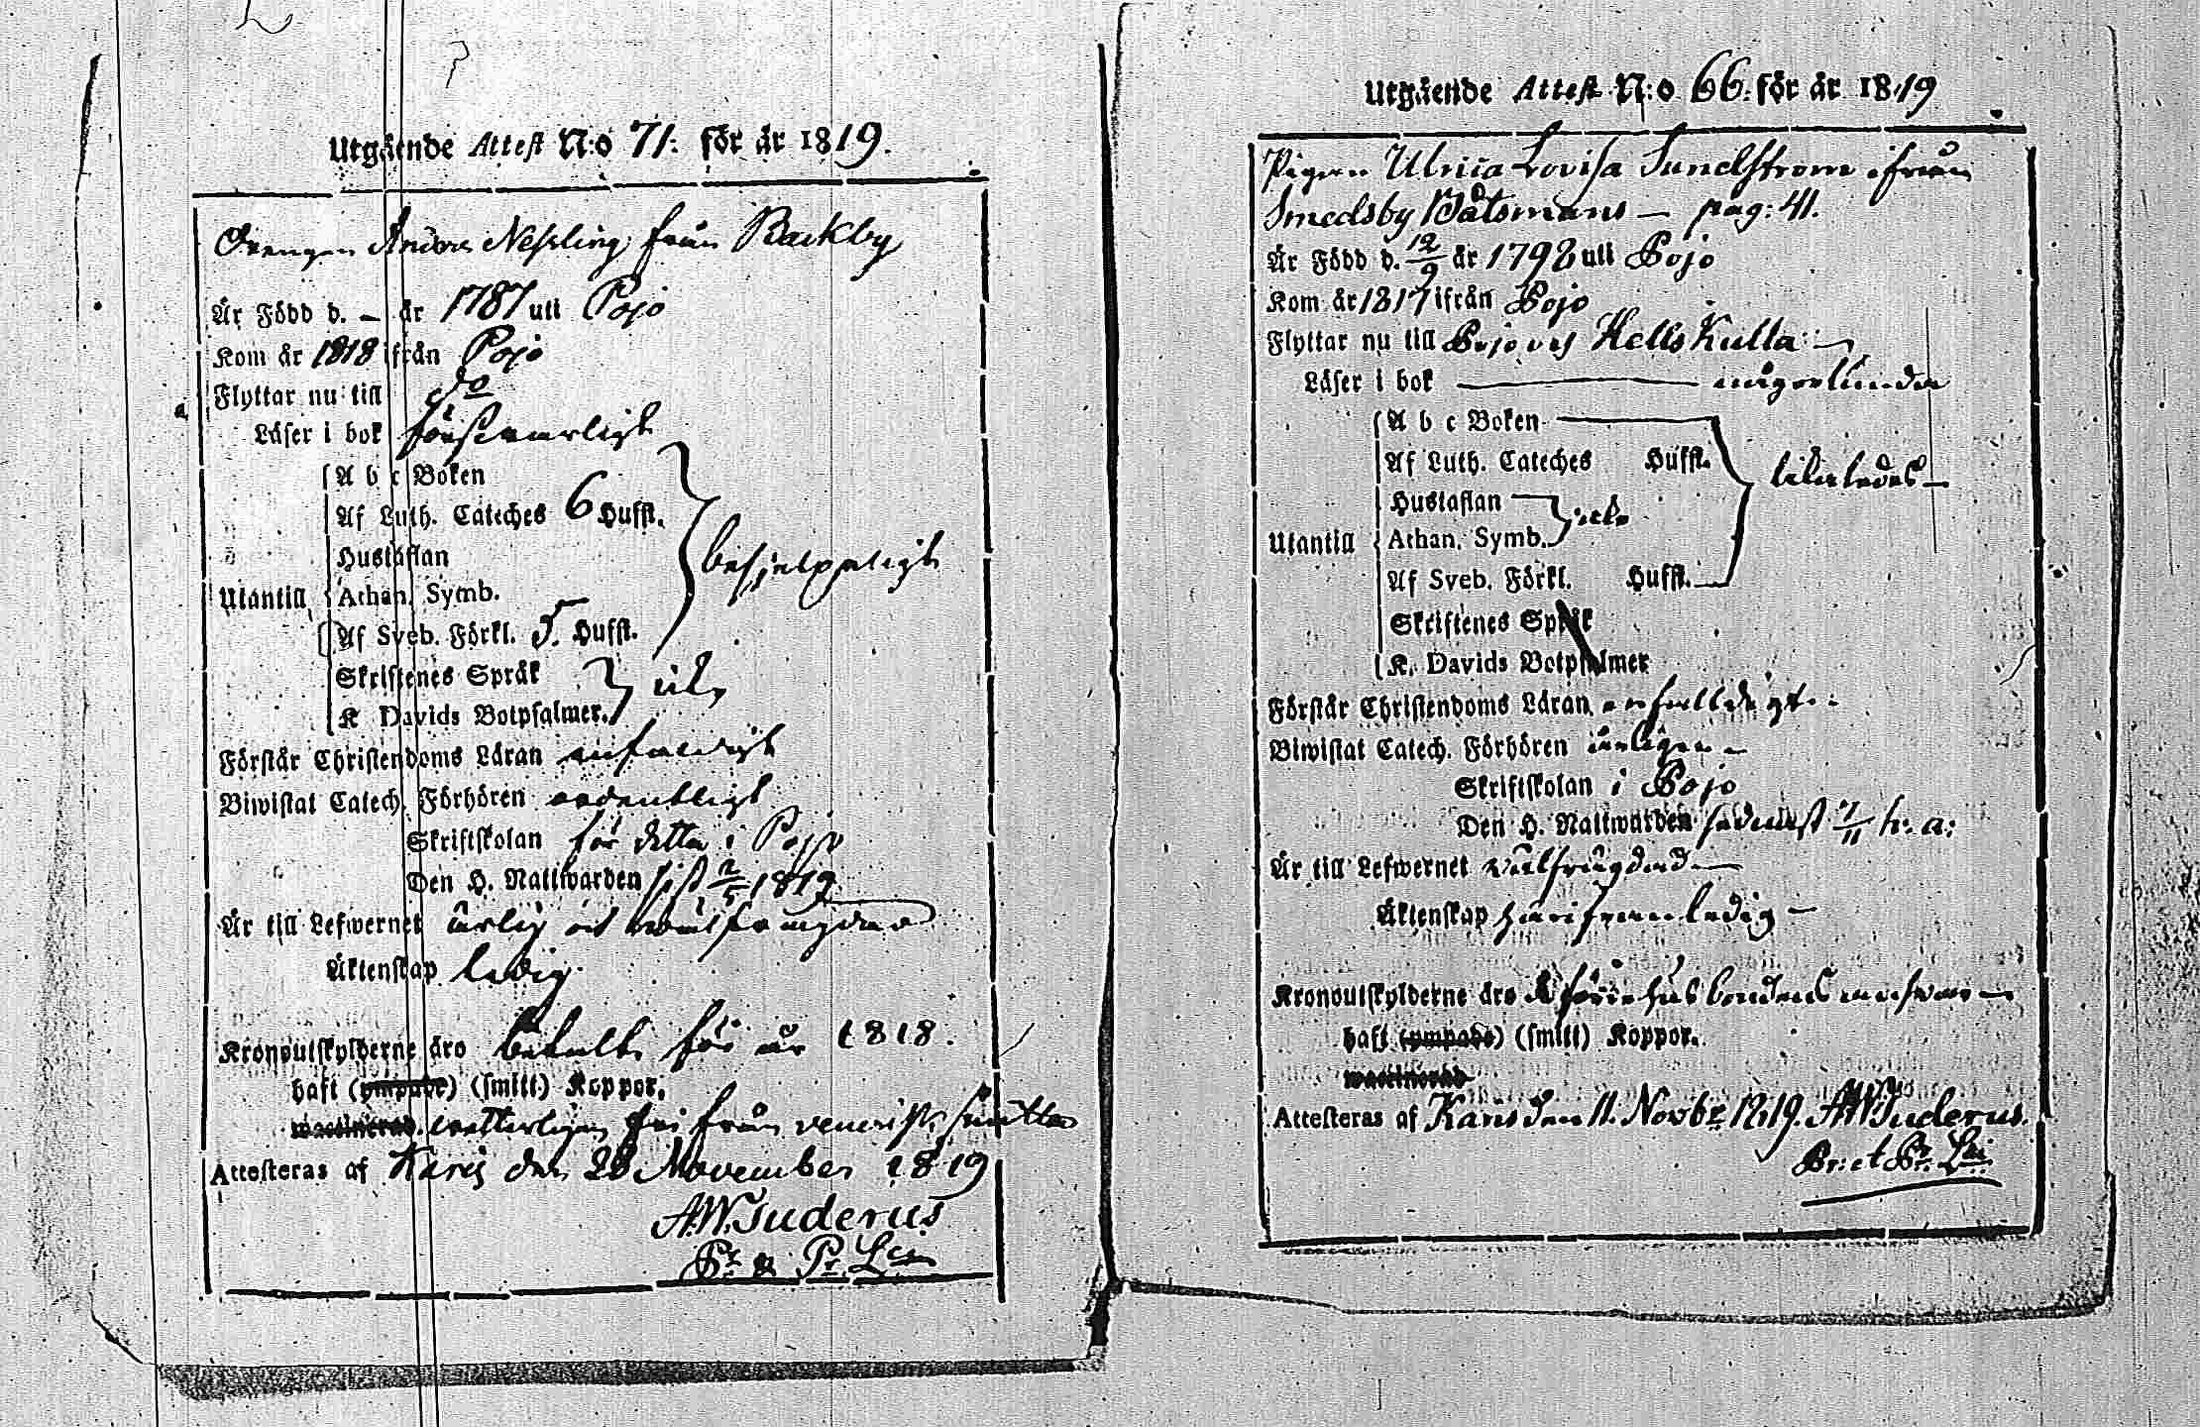 Utgående Attest N:o 71. för år 1819.
Drengen Anders Nessling från Backby
Är Född d. — år 1787 uti Pojo
Kom år 1818 ifrån Pojo
Flyttar nu till do
Läser i bok försvarligt
A b c Boken
Af Luth. Cateches 6 Hufst.
Hustaflan
behjelpeligt
Utantill
Athan. Symb.
Af Sveb. Förkl. 5. Hufst.
Skriftenes Språk
K Davids Botpsalmer.
Förstår Christendoms Läran enfaldigt
Biwistat Catech. Förhören ordentligt
Skriftskolan för detta i Pojo
Den H. Nattwarden sist 2/5 1819
Är till Lefwernet ärlig och välfrägdad
Äktenskap ledig.
Kronoutskylderne äro betalte för år 1818.
haft (ympade) (smitt) Koppor.
waccinerad. fri från venerisk smitta
Attesteras af Karis den 28 November 1819
A.W. Juderus
Pr & Pr. Lis
Utgående Attest N:o 66. för år 1819
Pigan Ulrica Lovisa Sundstrom ifrån
Smedsby Båtsmans — pag: 41.
Är Född d. 12/9 år 1798 uti Pojo
Kom år 1817 ifrån Pojo
Flyttar nu till Pojo och Hells Kulla
Läser i bok — någorlunda
A b c Boken
Af Luth. Cateches Hufst.
likaledes —
Hustaflan
icke
Utantill
Athan. Symb.
Af Sveb. Förkl. Hufst.
Skriftenes Språk
K. Davids Botpsalmer
Förstår Christendoms Läran enfaldigt
Biwistat Catech. Förhören årligen —
Skriftskolan i Pojo
Den H. Nattwarden sednast 7/11 h: a:
Är till Lefwernet välfrägdad —
Äktenskap härifrån ledig —
Kronoutskylderne äro å förre husbondens ansvar —
haft (ympade) (smitt) Koppor.
waccinerad
Attesteras af Karis den 11. Novbr 1819. AW Juderus.
Pr: et Pr. Lis